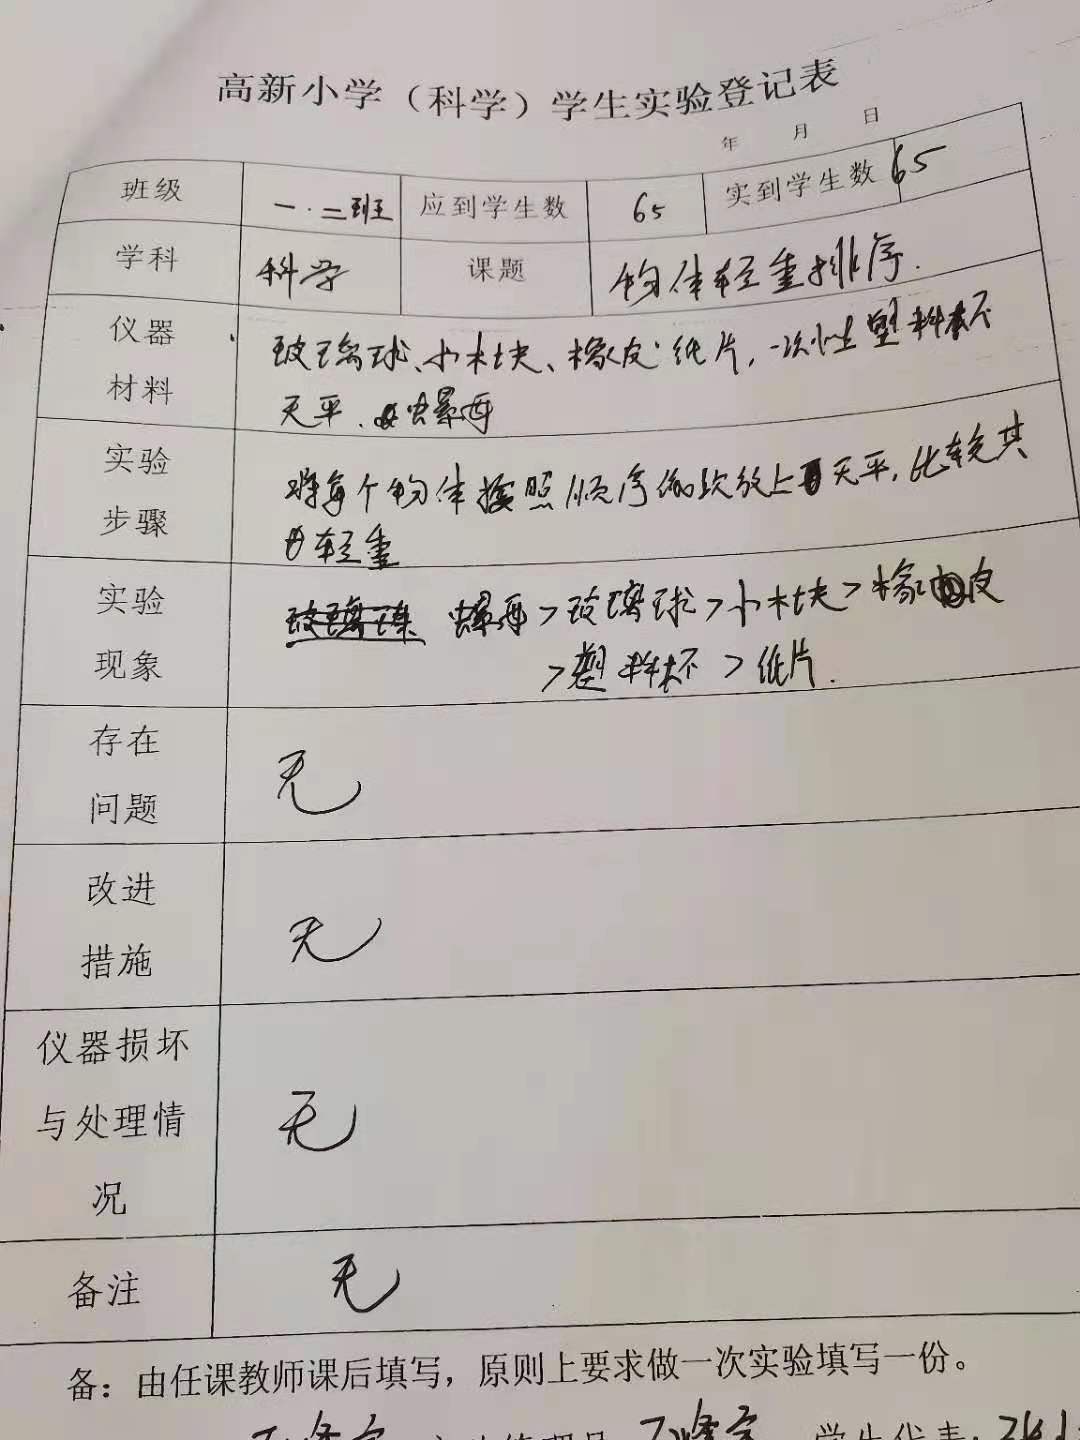 高新小学（科学）学生实验登记表
年 月 日
班级 一·二班 应到学生数 65 实到学生数 65
学科 科学 课题 物体轻重排序.
仪器材料 玻璃球、小木块、橡皮、纸片，一次性塑料杯
天平、螺母
实验步骤 将每个物体按照顺序依次放上天平，比较其
轻重
实验现象 螺母>玻璃球>小木块>橡皮
>塑料杯>纸片.
存在问题 无
改进措施 无
仪器损坏与处理情况 无
备注 无
备：由任课教师课后填写，原则上要求做一次实验填写一份。
学生代表：